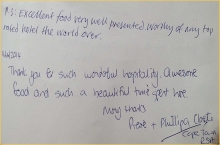 P.S: Excellent food very well presented worthy of any top
rated hotel the world over.
Thank you for such wonderful hospitality. Awesome
food and such a beautiful time spent here
Many thanks
Rene + Phillipa
Cape Town
RSA